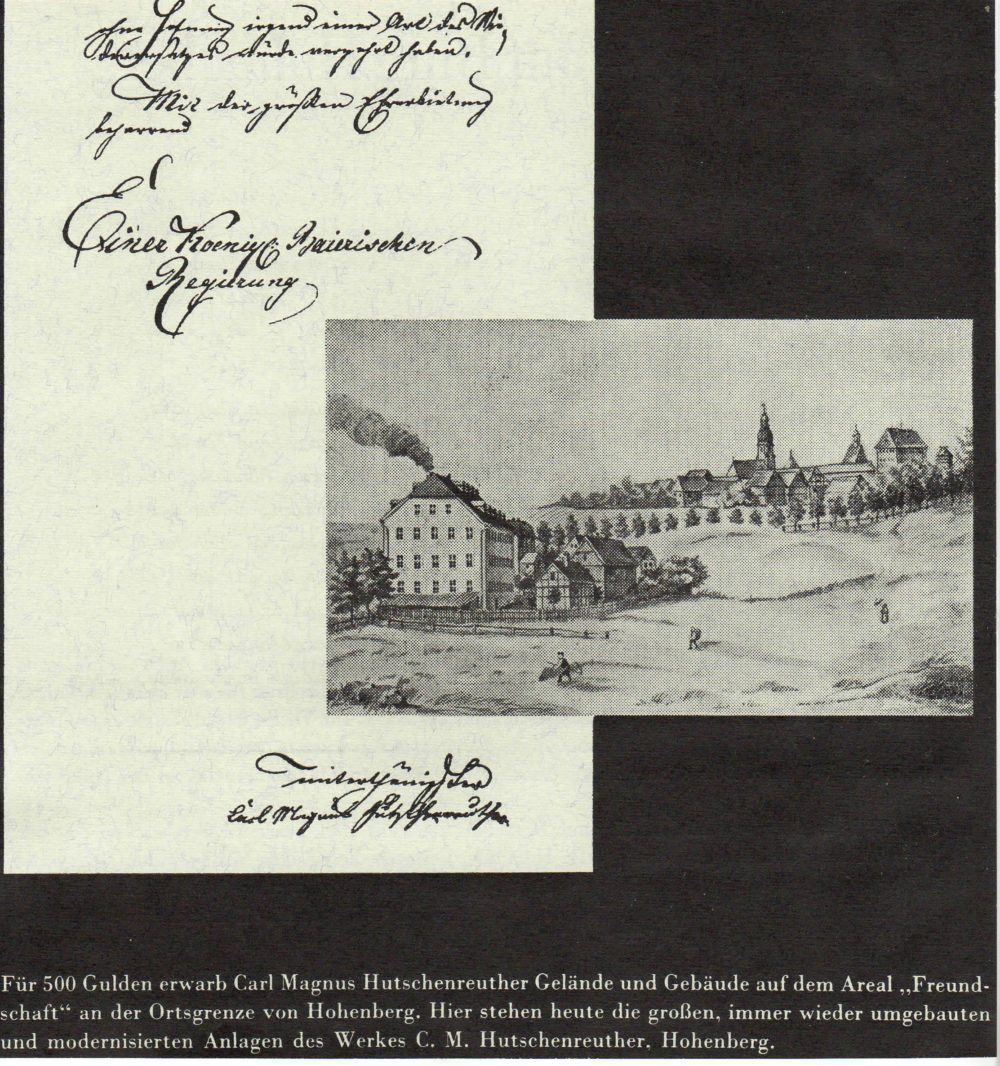 ohne Hofnung irgend einer Art des
würde verzehrt haben.
Mit der größten Ehrerbietung
beharrend
Einer Koenigl: Baierischen
Regierung
unterthänigster
Carl Magnus Hutschenreuther
Für 500 Gulden erwarb Carl Magnus Hutschenreuther Gelände und Gebäude auf dem Areal „Freund-
schaft“ an der Ortsgrenze von Hohenberg. Hier stehen heute die großen, immer wieder umgebauten
und modernisierten Anlagen des Werkes C. M. Hutschenreuther, Hohenberg.